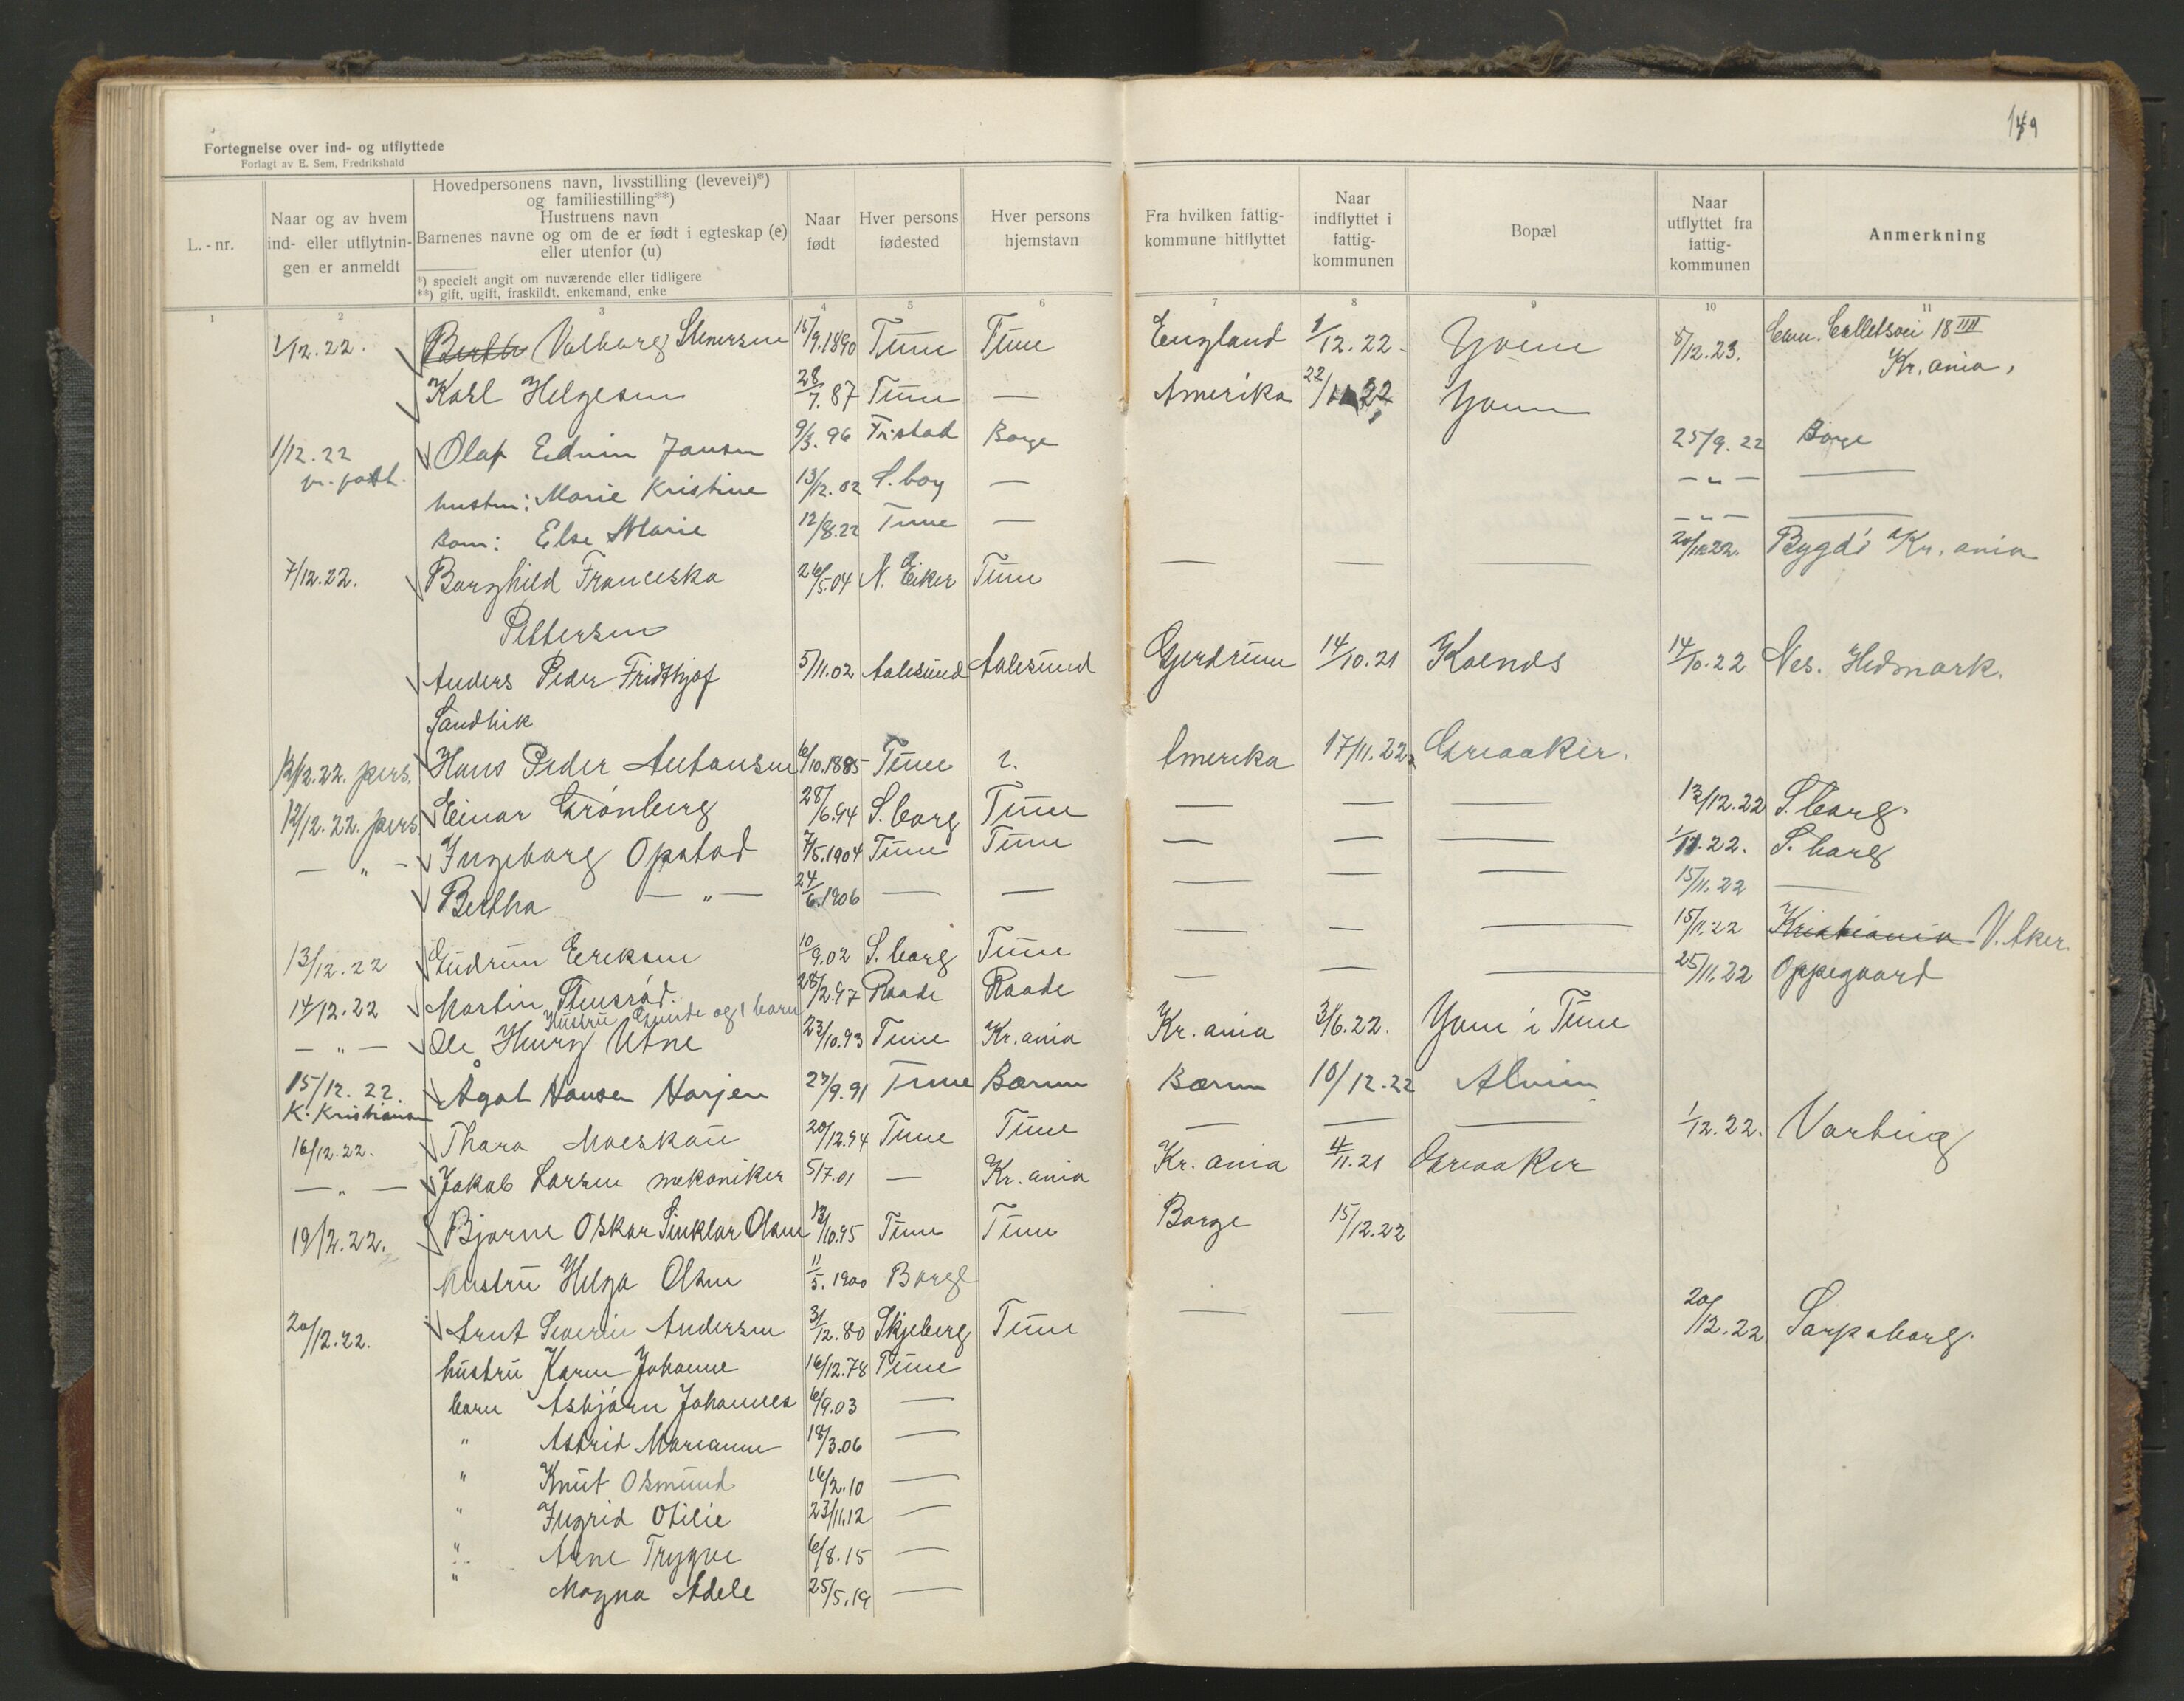 149
Fortegnelse over ind- og utflyttede
Forlagt av E. Sem, Fredrikshald
L.-nr.
Naar og av hvem ind- eller utflytningen er anmeldt
Hovedpersonens navn, livsstilling (levevei)*)
og familiestilling**)
Hustruens navn
Barnenes navne og om de er født i egteskap (e)
eller utenfor (u)
*) specielt angit om nuværende eller tidligere
**) gift, ugift, fraskildt, enkemand, enke
Naar født
Hver persons fødested
Hver persons hjemstavn
Fra hvilken fattigkommune hitflyttet
Naar indflyttet i fattigkommunen
Bopæl
Naar utflyttet fra fattigkommunen
Anmerkning
1 2 3 4 5 6 7 8 9 10 11
1/12.22. Valborg Stenersen 15/9.1890 Tune Tune England 1/12.22 - Yven 5/12.23. Cam. Colletsvei 18 IIII
Kr.ania,
Karl Helgesen 28/7.87 Tune — Amerika 22/11 22 Yven
1/12.22 Olaf Edvin Jansen 9/3.96 Fr.stad Borge 25/9.22 Borge
pr. post. hustru: Marie Kristine 13/12.02 S.borg — — " — —
Barn: Else Marie 12/8.22 Tune — — " — —
7/12.22. Borghild Franciska 26/5.04 N. Eiker Tune — — — 20/11.22. Bygdö Kr.ania
Pettersen
Anders Peder Fridthjof 5/11.02 Aalesund Aalesund Gjerdrum 14/10.21 Kalnes 14/10.22 Nes. Hedmark.
Sandvik
12/12.22. pers. Hans Peder Antonsen 6/10.1885 Tune ?. Amerika 17/11.22 Greaaker.
12/12.22. pers Einar Grönberg 28/6.94 S.borg Tune — — — 12/12.22 S.borg
— " — Ingeborg Opstad 7/5.1904 Tune Tune — — — 1/11.22. S.borg
Bertha — " — 24/6.1906 — — — — — 15/11.22 —
13/12.22 Gudrun Eriksen 10/9.02 S.borg Tune — — — 15/11.22 Kristiania V. Aker.
14/12.22 Martin Stensrød. 28/2.97 Raade Raade — — — 25/11.22 Oppegaard
Hustru og 1 barn
— " — Ole Henry Utne 23/10.93 Tune Kr.ania Kr.ania 3/6.22. Yven i Tune
15/12.22. Ågot Hansen Harjen 27/9.91 Tune Bærum Bærum 10/12.22 Alvim
K. Kristiansen
16/12.22. Thora Moeskau 20/12.94 Tune Tune — — — 1/12.22. Varteig
— " — Jakob Larsen mekaniker 5/7.01 — Kr.ania Kr.ania 4/11.21 Greaaker
19/12.22. Bjarne Oskar Sinklar Olsen 13/10.95 Tune Tune Borge 15/12.22
hustru Helga Olsen 11/5.1900 Borge
20/12.22. Arnt Severin Andersen 31/12.80 Skjeberg Tune — — — 20/12.22 Sarpsborg.
hustru Karen Johanne 16/12.78 Tune
barn Asbjörn Johannes 6/9.03 —
" Astrid Marianne 18/3.06 —
" Knut Osmund 16/2.10 —
" Ingrid Otilie 23/11.12 —
" Arne Trygve 6/8.15 —
" Magna Adele 25/5.19 —